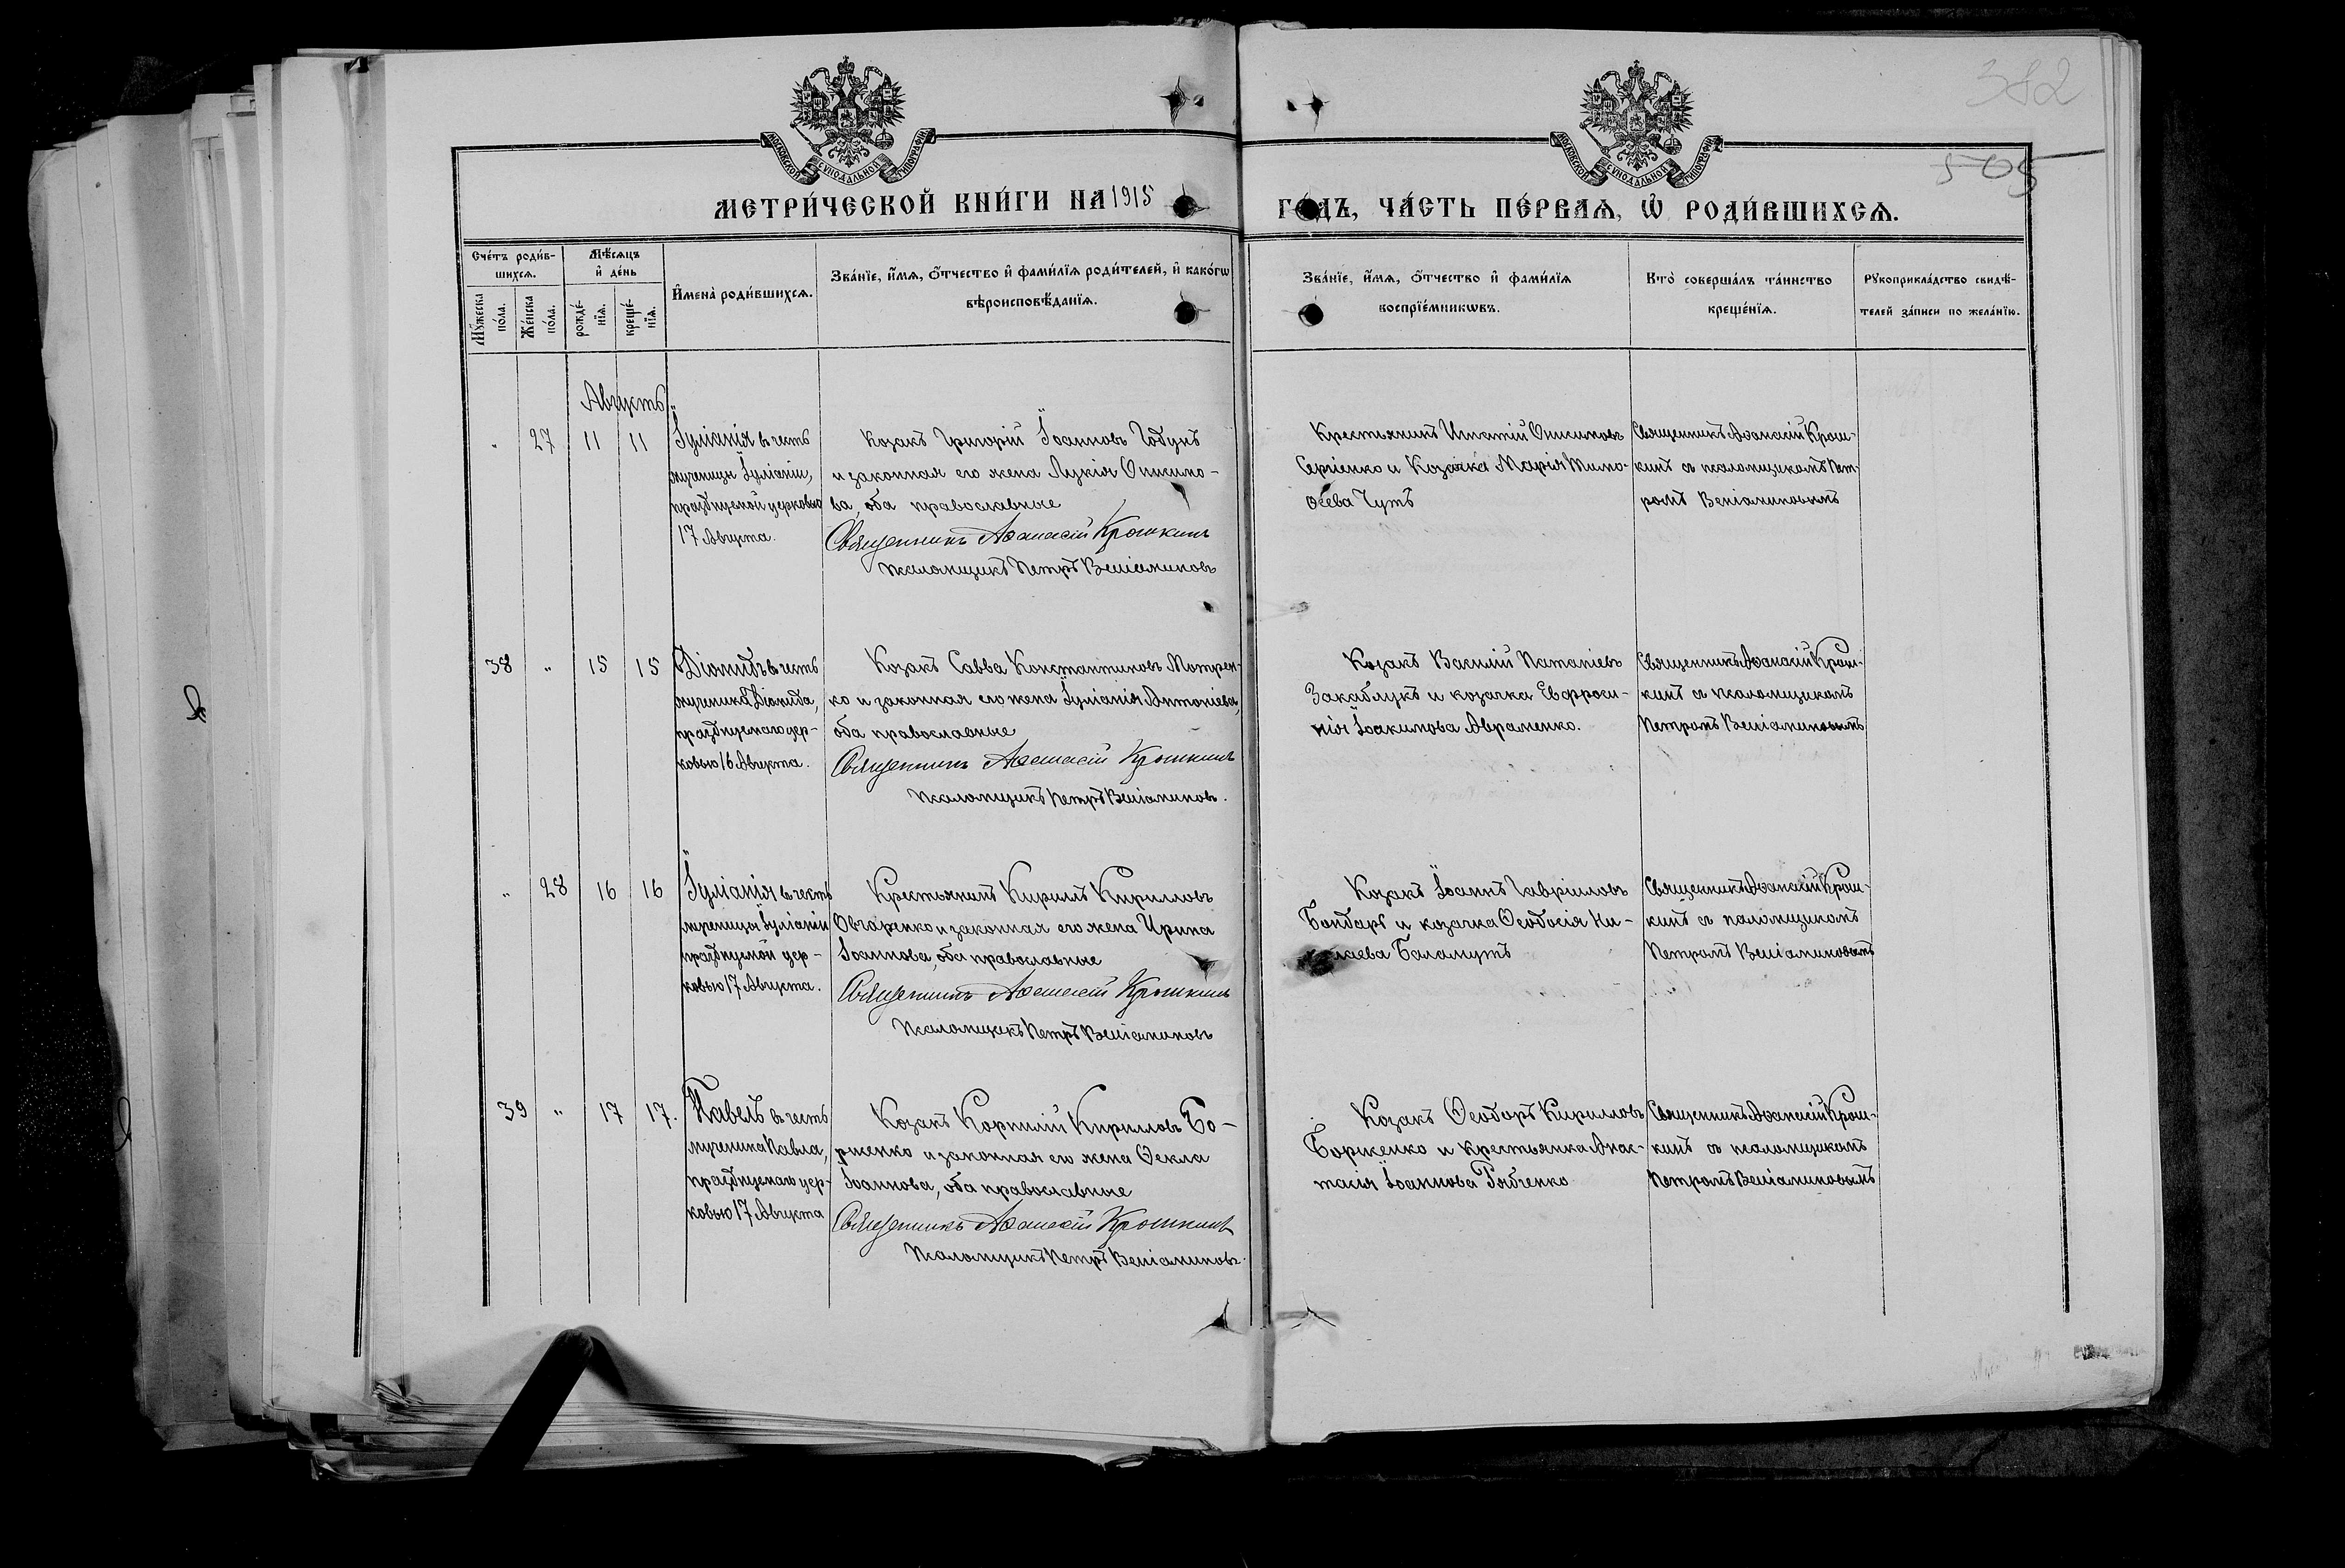 382
505
МОСКОВСКОЙ СѴНОДАЛЬНОЙ ТИПОГРАФІИ
МОСКОВСКОЙ СѴНОДАЛЬНОЙ ТИПОГРАФІИ
МЕТРИ́ЧЕСКОЙ КНИ́ГИ НА 1915 ГО́ДЪ, ЧА́СТЬ ПЕ́РВАѦ, Ѽ РОДИ́ВШИХСѦ.
Сче́тъ роди́в-
шихсѧ.
Мꙋ́жеска
по́ла.
Же́нска
по́ла.
Мѣ́сѧцъ
и҆ де́нь
рожде́-
нїѧ.
креще́-
нїѧ.
И҆мена̀ роди́вшихсѧ.
Зва́нїе, и҆́мѧ, ѻ҆́тчество и҆ фами́лїѧ роди́телей, и҆ како́гѡ
вѣроисповѣ́данїѧ.
Зва́нїе, и҆́мѧ, ѻ҆́тчество и҆ фами́лїѧ
воспрїе́мникѡвъ.
Кто̀ соверша́лъ та́инство
креще́нїѧ.
Рꙋкоприкла́дство свидѣ́-
телей за́писи по жела́нїю.
Августъ
" 27 11 11
Іуліанія въ честь
мученицы Іуліаніи,
празднуемой церковью
17 Августа.
Козакъ Григорій Іоанновъ Годунъ
и законная его жена Лукія Онисимо-
ва, оба православные
Священникъ Аѳанасій Крошкинъ
Псаломщикъ Петръ Веніаминовъ
Крестьянинъ Игнатій Онисимовъ
Сергіенко и Козачка Марія Тимо-
ѳеева Чутъ
Священникъ Аѳанасій Крош-
кинъ съ псаломщикомъ Пет-
ромъ Веніаминовымъ
38 " 15 15
Діомидъ въ честь
мученика Діомида,
празднуемаго цер-
ковью 16 Августа.
Козакъ Савва Константиновъ Матрен-
ко и законная его жена Іуліанія Антоніева,
оба православные
Священникъ Аѳанасій Крошкинъ
Псаломщикъ Петръ Веніаминовъ.
Козакъ Василій Патапіевъ
Закаблукъ и козачка Евфроси-
нія Іоакимова Авраменко.
Священникъ Аѳанасій Крош-
кинъ съ псаломщикомъ
Петромъ Веніаминовымъ
" 28 16 16
Іуліанія въ честь
мученицы Іуліаніи
празднуемой цер-
ковью 17 Августа.
Крестьянинъ Кириллъ Кирилловъ
Овчаренко и законная его жена Ирина
Іоаннова, оба православные
Священникъ Аѳанасій Крошкинъ
Псаломщикъ Петръ Веніаминовъ
Козакъ Іоаннъ Гавріиловъ
Бондарь и козачка Ѳеодосія Ни-
колаева Баламутъ
Священникъ Аѳанасій Крош-
кинъ съ псаломщикомъ
Петромъ Веніаминовымъ
39 " 17 17.
Павелъ въ честь
мученика Павла,
празднуемаго цер-
ковью 17 Августа
Козакъ Корнилій Кирилловъ Бо-
рженко и законная его жена Ѳекла
Іоаннова, оба православные
Священникъ Аѳанасій Крошкинъ
Псаломщикъ Петръ Веніаминовъ.
Козакъ Ѳеодоръ Кирилловъ
Борженко и крестьянка Анас-
тасія Іоаннова Рябченко
Священникъ Аѳанасій Крош-
кинъ съ псаломщикомъ
Петромъ Веніаминовымъ